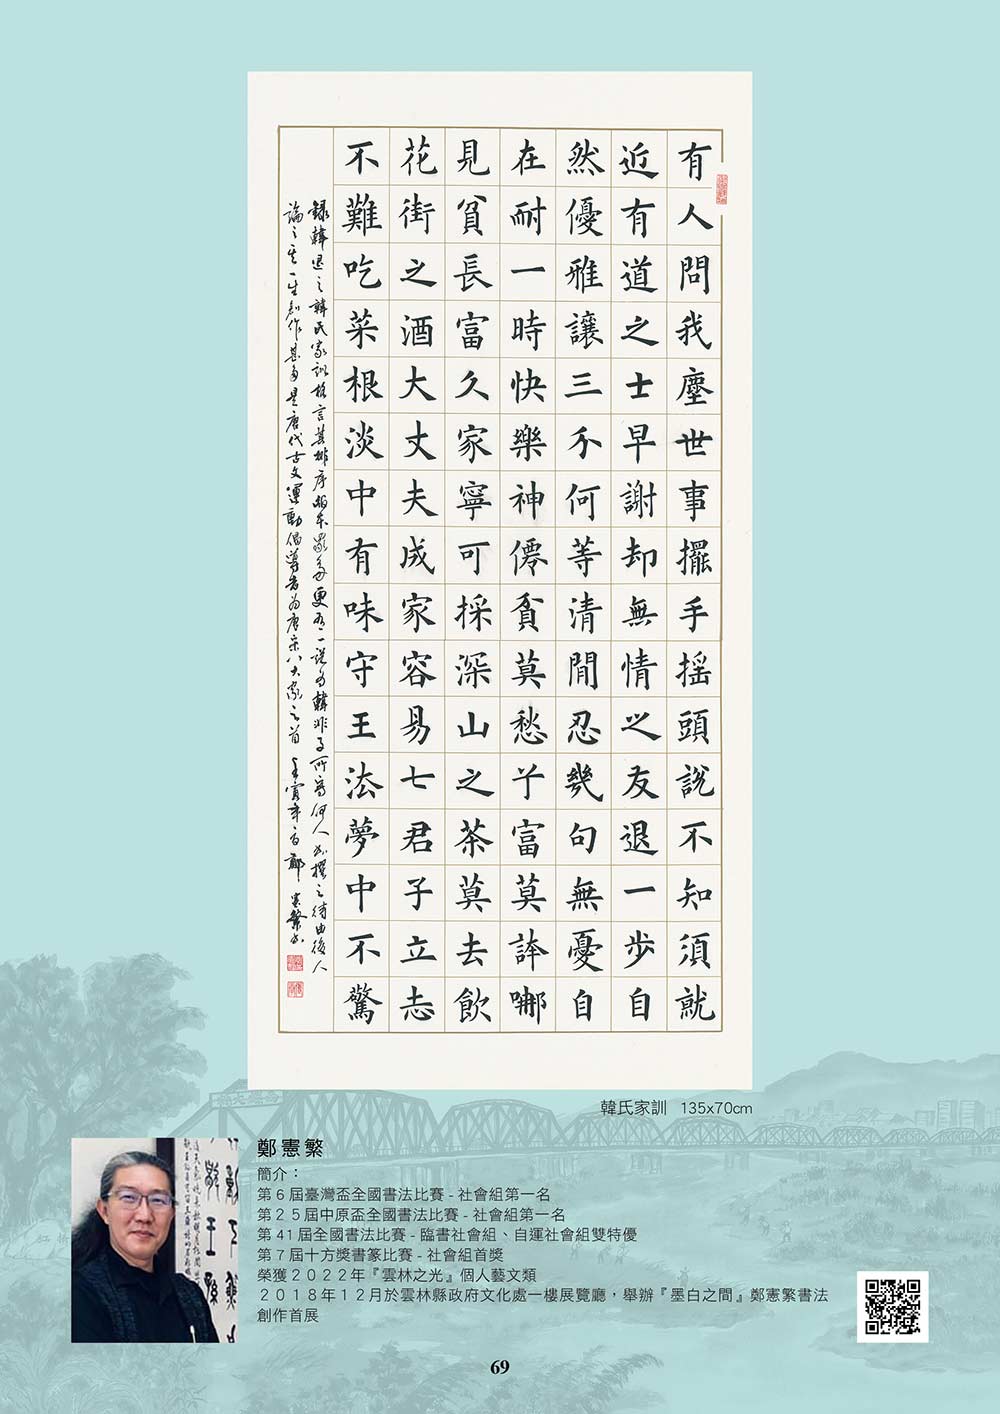 有人問我塵世事擺手搖頭說不知須就
近有道之士早謝却無情之友退一步自
然優雅讓三分何等清閒忍幾句無憂自
在耐一時快樂神僊貧莫愁兮富莫誇哪
見貧長富久家寧可採深山之茶莫去飲
花街之酒大丈夫成家容易士君子立志
不難吃菜根淡中有味守王法夢中不驚
錄韓退之韓氏家訓格言其排序版本眾多更有一說為韓非子所寫何人所撰之待由後人
論之其一生創作甚多是唐代古文運動倡導者為唐宋八大家之首 壬寅年 鄭憲繁書
韓氏家訓 135x70cm
鄭憲繁
簡介：
第6屆臺灣盃全國書法比賽-社會組第一名
第25屆中原盃全國書法比賽-社會組第一名
第41屆全國書法比賽-臨書社會組、自運社會組雙特優
第7屆十方獎書篆比賽-社會組首獎
榮獲2022年『雲林之光』個人藝文類
2018年12月於雲林縣政府文化處一樓展覽廳，舉辦『墨白之間』鄭憲繁書法
創作首展
69